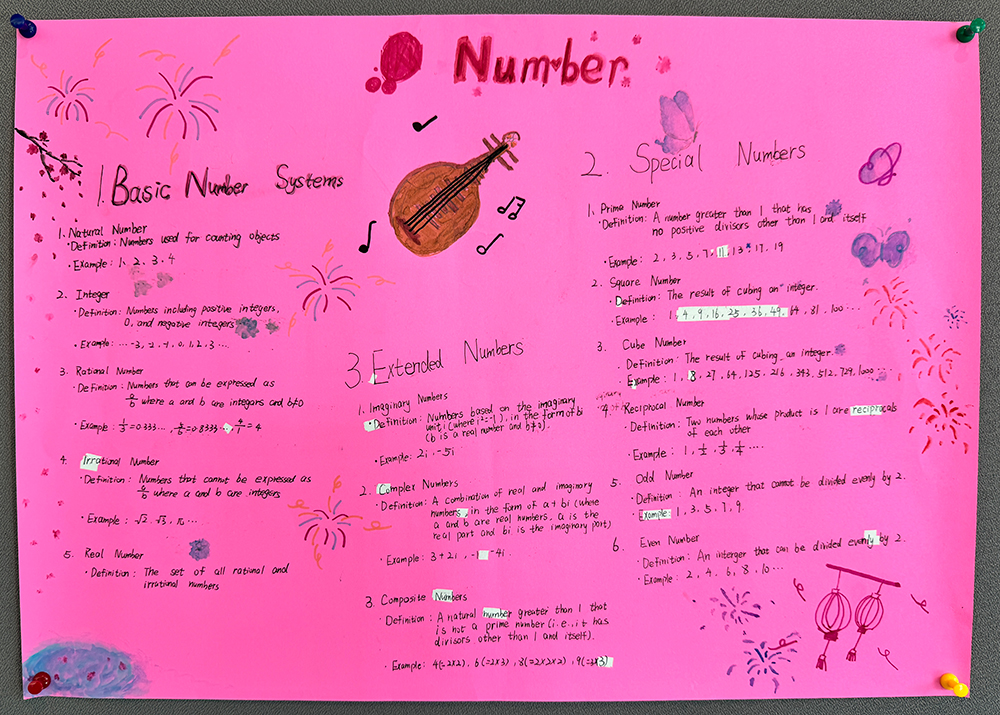 Number
1. Basic Number Systems
1. Natural Number
· Definition: Numbers used for counting objects
· Example: 1, 2, 3, 4
2. Integer
· Definition: Numbers including positive integers,
0, and negative integers
· Example: ... -3, -2, -1, 0, 1, 2, 3 ...
3. Rational Number
· Definition: Numbers that can be expressed as
a/b where a and b are integars and b≠0
· Example: 1/3=0.333... 5/6=0.8333... 4/1=4
4. Irrational Number
· Definition: Numbers that cannot be expressed as
a/b where a and b are integers
· Example: √2, √3, π, ...
5. Real Number
· Definition: The set of all rational and
irrational numbers
3. Extended Numbers
1. Imaginary Numbers
· Definition: Numbers based on the imaginary
unit i (where i²=-1), in the form of bi
(b is a real number and b≠0).
· Example: 2i, -5i
2. Complex Numbers
· Definition: A combination of real and imaginary
numbers, in the form of a + bi (where
a and b are real numbers, a is the
real part and bi is the imaginary part)
· Example: 3+2i, -1 -4i
3. Composite Numbers
Definition: A natural number greater than 1 that
is not a prime number (i.e., it has
divisors other than 1 and itself).
· Example: 4(=2x2), 6(=2x3), 8(=2x2x2), 9(=3x3)
2. Special Numbers
1. Prime Number
· Definition: A number greater than 1 that has
no positive divisors other than 1 and itself
· Example: 2, 3, 5, 7, 11, 13, 17, 19
2. Square Number
· Definition: The result of cubing an integer.
· Example: 1, 4, 9, 16, 25, 36, 49, 64, 81, 100 ...
3. Cube Number
Definition: The result of cubing an integer.
· Example: 1, 8, 27, 64, 125, 216, 343, 512, 729, 1000 ...
4. Reciprocal Number
· Definition: Two numbers whose product is 1 are reciprocals
of each other
· Example: 1, 1/2, 1/3, 1/4 ...
5. Odd Number
· Definition: An integer that cannot be divided evenly by 2.
· Example: 1, 3, 5, 7, 9.
6. Even Number
· Definition: An interger that can be divided evenly by 2.
· Example: 2, 4, 6, 8, 10 ...